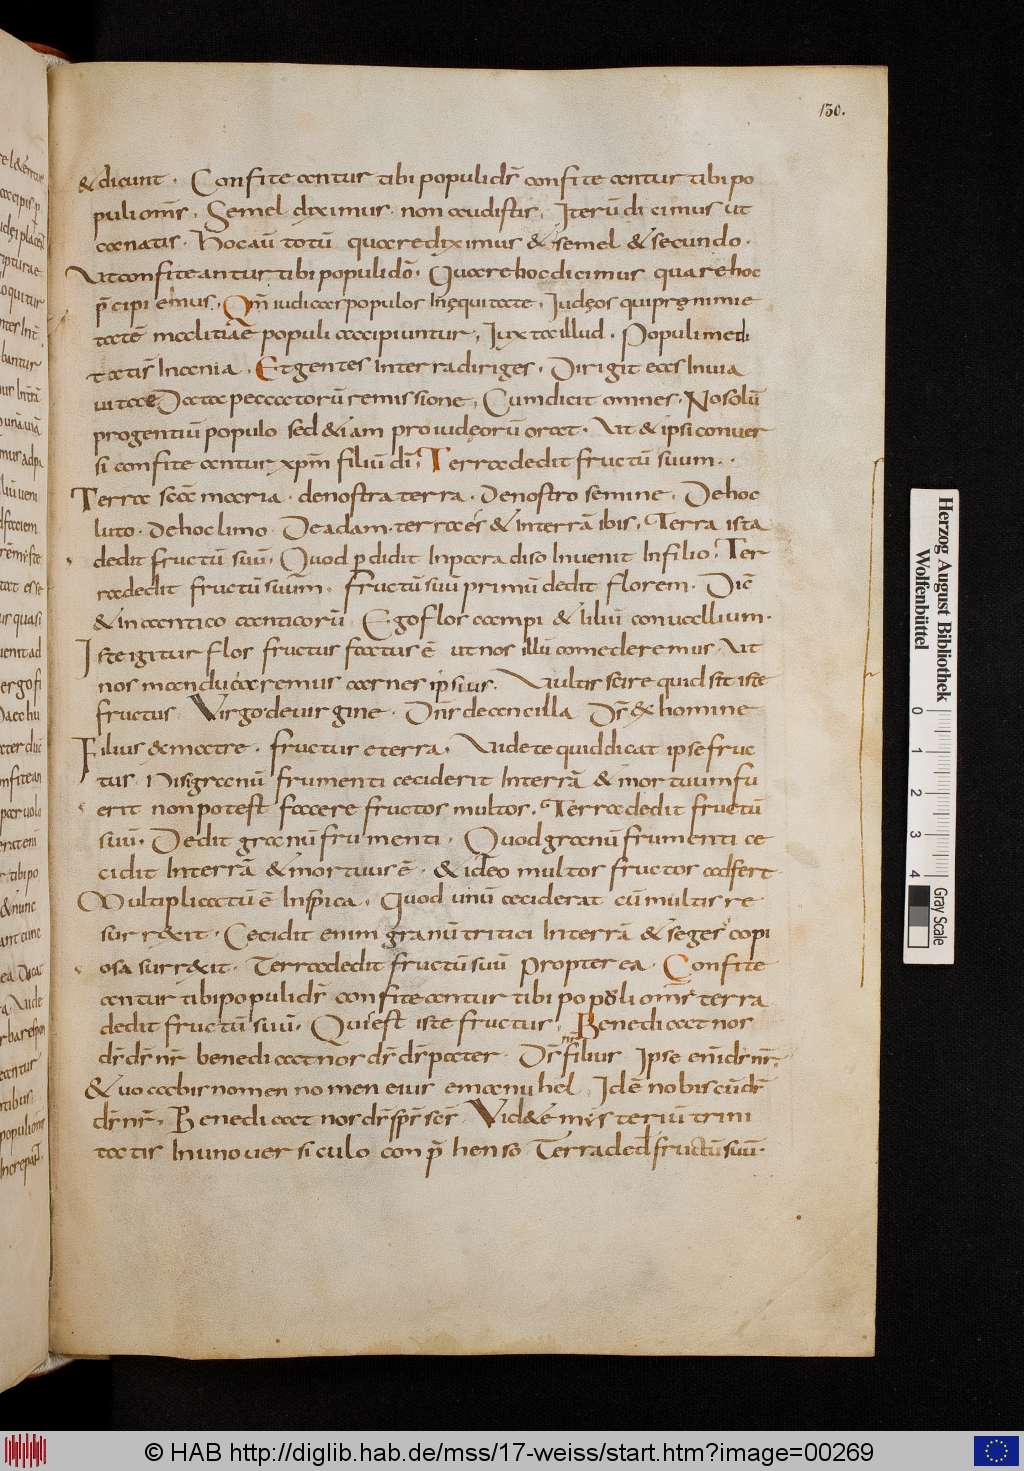 130.
& dicunt. Confiteantur tibi populi d̄s confiteantur tibi po
puli om̄s. Semel diximus. non audistis. Iterū dicimus ut
canatis. Hoc aū totū quare diximus & semel & secundo.
Ut confiteantur tibi populi dō. Quare hoc dicimus quare hoc
p̄cipiemus. Qm̄ iudicas populos In ęquitate. Iudęos qui p̱ nimie
tatē malitiae populi accipiuntur, Iuxta illud. Populi medi
tati st̄ Inania. Et gentes In terra diriges. Dirigit eas In uia
uitae Data peccatorū remissione, Cum dicit omnes. Non solū
pro gentiū populo sed & iam pro iudęorū orat. Ut & ipsi conuer
si confiteantur xp̄m filiū dī; Terra dedit fructū suum.
Terra sc̄a maria. de nostra terra. De nostro semine. De hoc
luto. de hoc limo. De adam. terra es & In terrā ibis. Terra ista
dedit fructū suū. Quod p̱didit In paradiso Inuenit In filio. Ter
ra dedit fructū suūm. fructū suū primū dedit florem. Dic̄
& in cantico canticorū Ego flos campi & liliū conuallium.
Iste igitur flos fructus factus ē ut nos illū comederemus. Ut
nos manducaremus carnes ipsius. Uultis scire quid sit iste
fructus. Virgo de uirgine. Dn̄s de ancilla Ds̄ & homine
Filius & matre. fructus & terra. Uidete quid dicat ipse fruc
tus. Nisi granū frumenti ceciderit In terrā & mortuum fu
erit non potest facere fructos multos. Terra dedit fructū
suū. Dedit granū frumenti. Quod granū frumenti ce
cidit In terrā & mortuus ē. & ideo multos fructos adfert.
Multiplicatū ē In spica. Quod unū ceciderat cū multis re
surrexit. Cecidit enim granū tritici In terrā & seges copi
osa surrexit. Terra dedit fructū suū Propterea. Confite
antur tibi populi d̄s confiteantur tibi populi om̄s terra
dedit fructū suū. Qui est iste fructus. Benedicat nos
ds̄ ds̄ nr̄ benedicat nos ds̄ ds̄ pater. Ds̄ filius Ipse enī ds̄ nr̄.
& uocabis nomen nomen eius emanuhel. Idē nobiscū ds̄
ds̄ nr̄. Benedicat nos ds̄ sps̄ scs̄. Vid&e mysteriū trini
tatis In uno uersiculo conp̄henso Terra ded̄ fructū suū.
Herzog August Bibliothek
Wolfenbüttel
0 1 2 3 4
Gray Scale
© HAB http://diglib.hab.de/mss/17-weiss/start.htm?image=00269